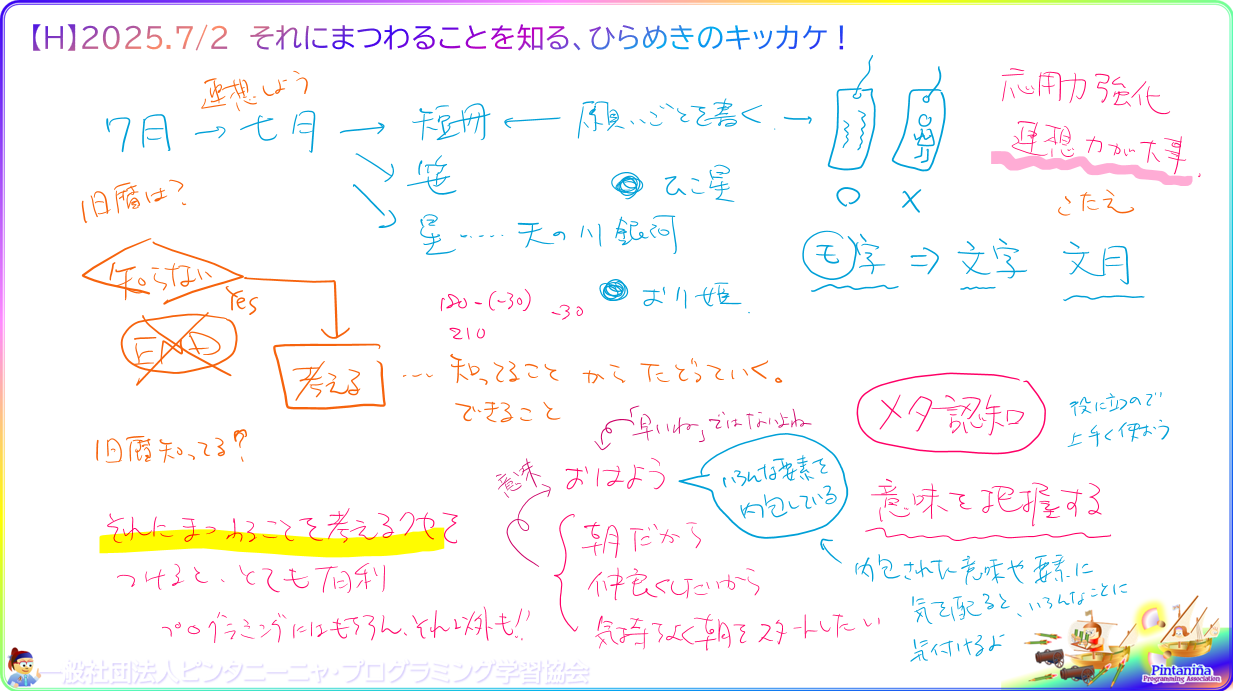 【H】2025.7/2 それにまつわることを知る、ひらめきのキッカケ！
連想しよう
7月 → 七月 → 短冊 ← 願いごとを書く →
笹
星 …… 天の川 銀河
ひこ星
おり姫
○ ×
応用力強化
連想力が大事
こたえ
モ字 ⇒ 文字 文月
旧暦は？
知らない
Yes
END
考える … 知ってること からたどっていく。
できること
180-(-30) -30
210
旧暦知ってる？
それにまつわることを考えるクセを
つけると、とても有利
プログラミングにはもちろん、それ以外も!!
「早いね」ではないよね
意味 おはよう
いろんな要素を
内包している
朝だから
仲良くしたいから
気持ちよく朝をスタートしたい
メタ認知
役に立つので
上手く使おう
意味を把握する
内包された意味や要素に
気を配ると、いろんなことに
気付けるよ
一般社団法人ピンタニーニャ・プログラミング学習協会
Pintaniña
Programming Association